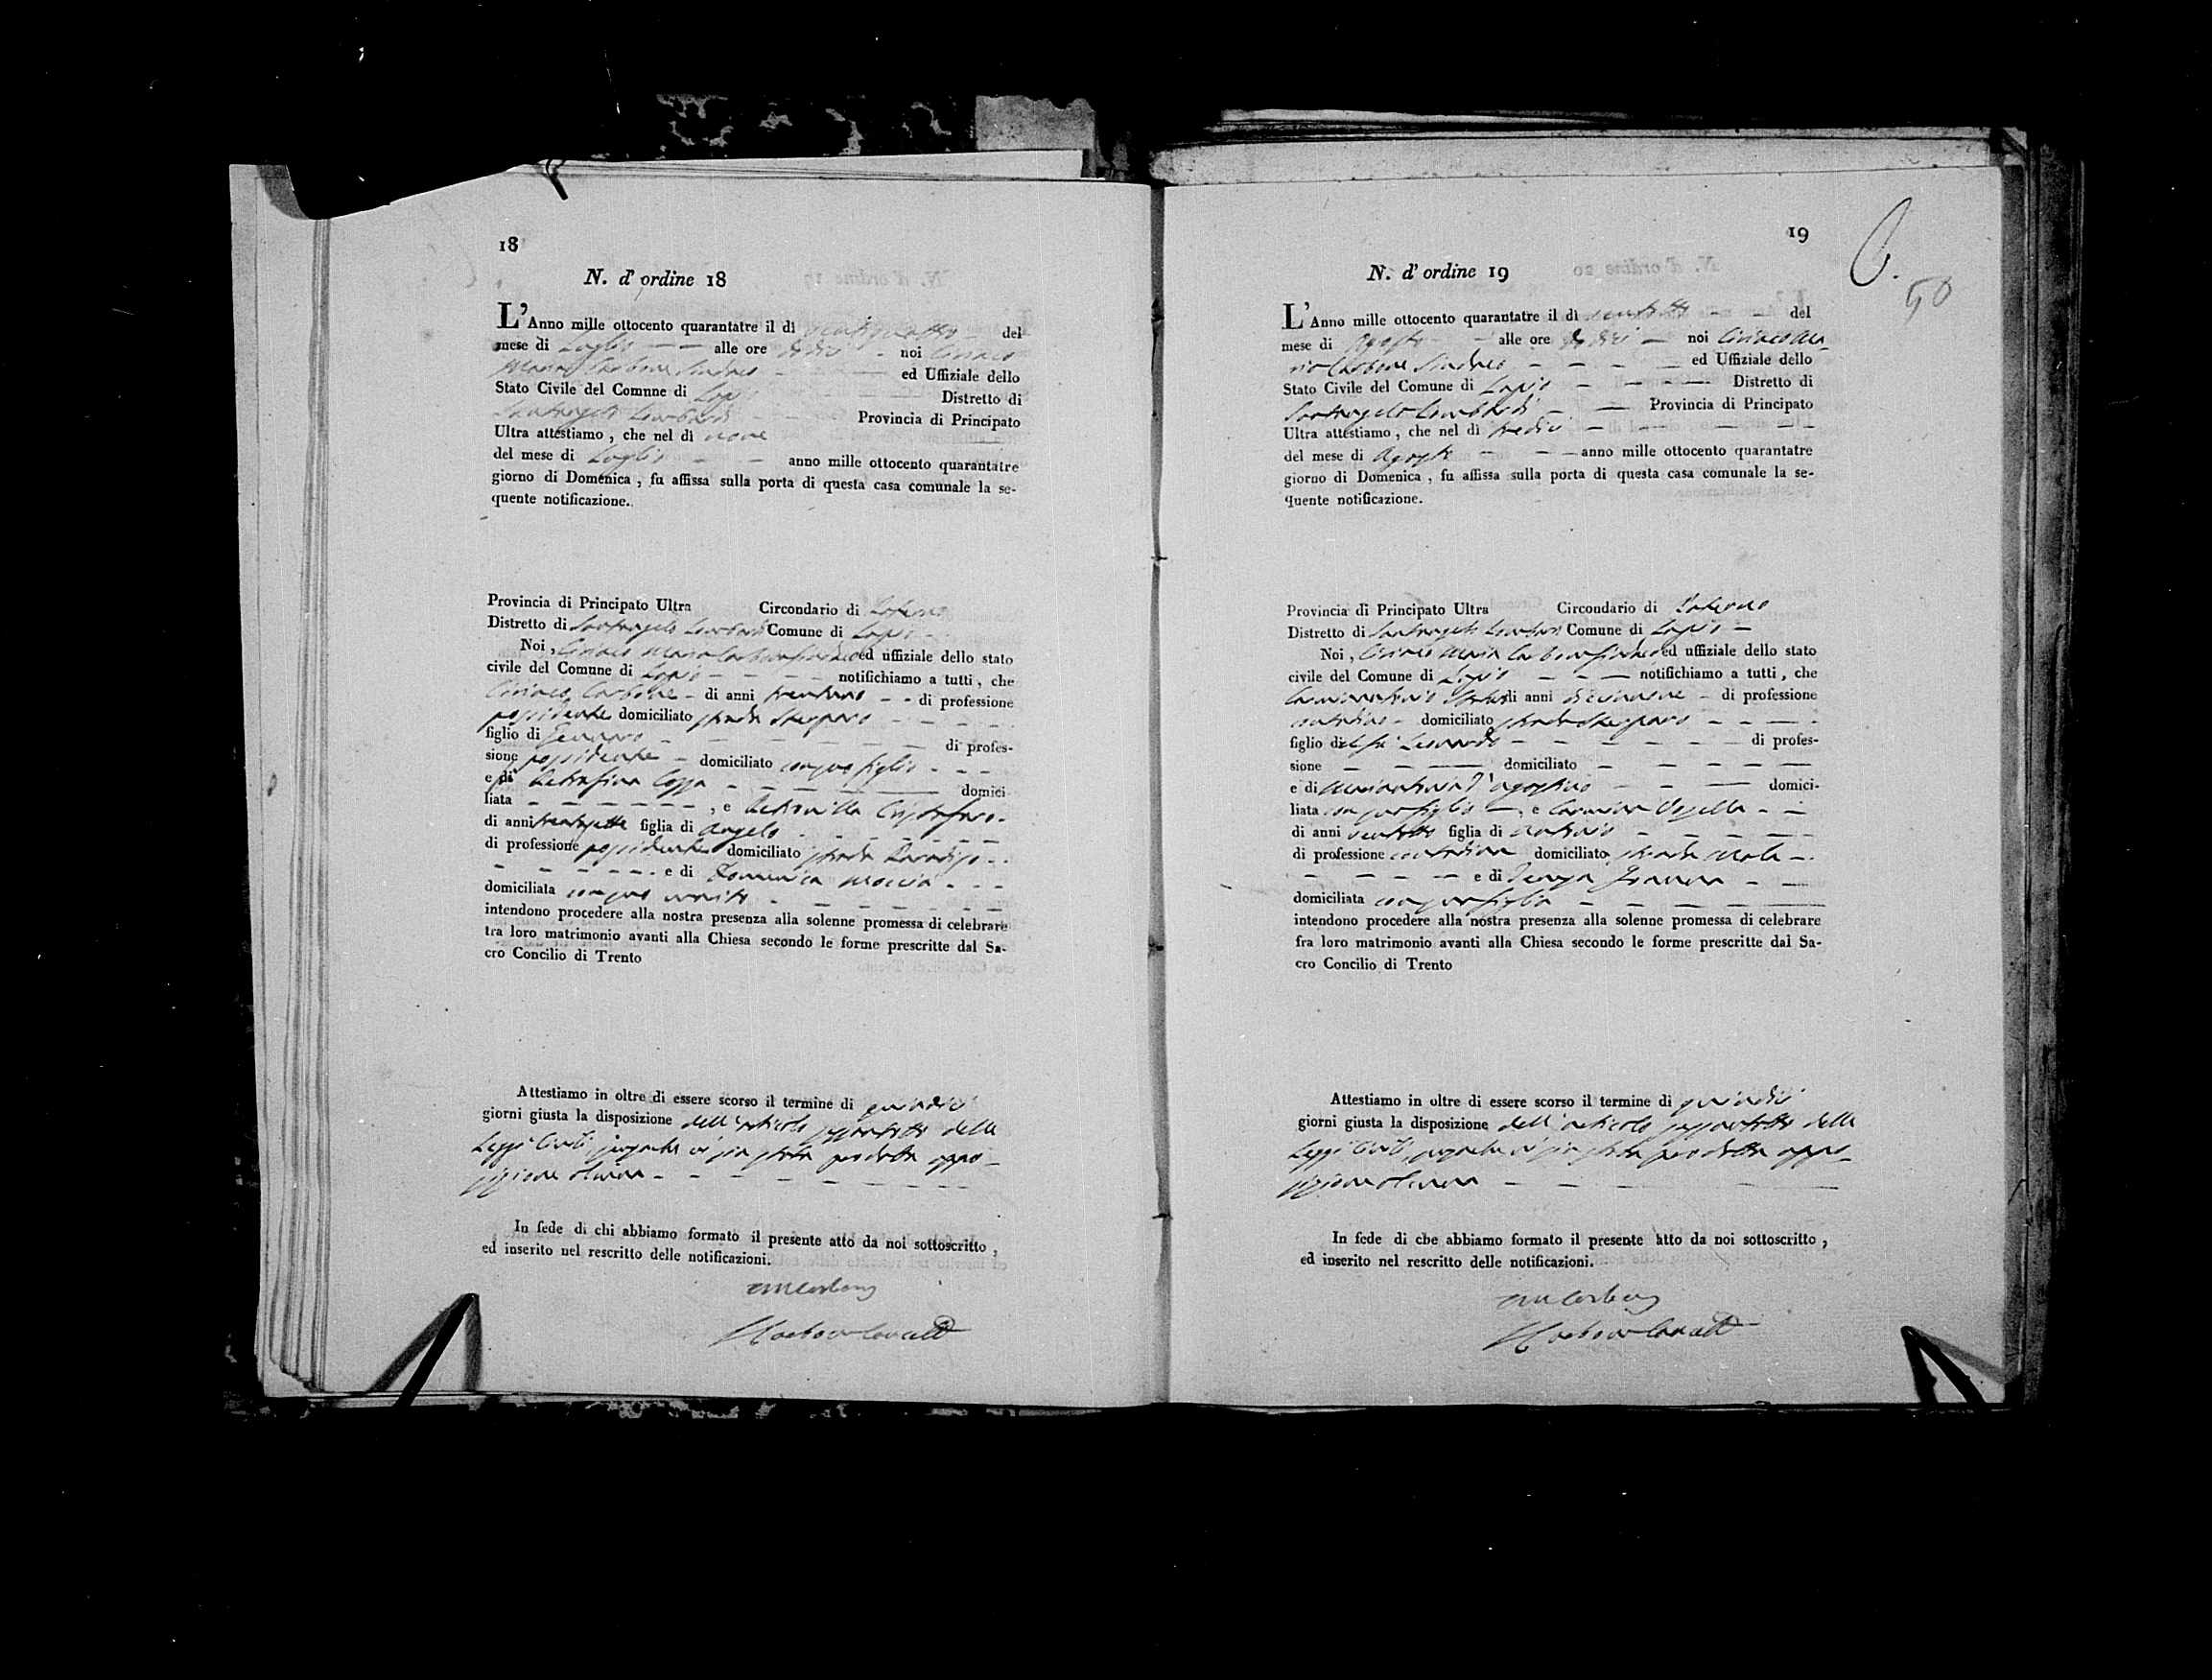 18
N. d' ordine 18
L'Anno mille ottocento quarantatre il dì ventiquattro del
mese di Luglio alle ore dodici noi Ciriaco
Maria Carbone Sindaco ed Uffiziale dello
Stato Civile del Comnne di Lapio Distretto di
Santangelo Lombardi Provincia di Principato
Ultra attestiamo , che nel dì nove
del mese di Luglio anno mille ottocento quarantatre
giorno di Domenica , fu affissa sulla porta di questa casa comunale la se-
quente notificazione.
Provincia di Principato Ultra Circondario di Paterno
Distretto di Santangelo Lombardi Comune di Lapio
Noi , Ciriaco Maria Carbone Sindaco ed uffiziale dello stato
civile del Comune di Lapio notifichiamo a tutti , che
Ciriaco Carbone di anni trentuno di professione
possidente domiciliato strada
figlio di Gennaro di profes-
sione possidente domiciliato con suo figlio
e di Serafina domici
liata , e Petronilla Cristofaro
di anni trentasette figlia di Angelo
di professione possidente domiciliato strada Paradiso
e di Domenica Moccia
domiciliata con suo marito
intendono procedere alla nostra presenza alla solenne promessa di celebrare
tra loro matrimonio avanti alla Chiesa secondo le forme prescritte dal Sa-
cro Concilio di Trento
Attestiamo in oltre di essere scorso il termine di quindici
giorni giusta la disposizione dell'articolo sessantotto delle
Leggi Civili, senza che vi sia stata prodotta oppo-
sizione alcuna
In fede di chi abbiamo formato il presente atto da noi sottoscritto ,
ed inserito nel rescritto delle notificazioni.
CM Carbone
19
N. d' ordine 19
L'Anno mille ottocento quarantatre il dì ventotto del
mese di Agosto alle ore dodici noi Ciriaco Ma-
ria Carbone Sindaco ed Uffiziale dello
Stato Civile del Comune di Lapio Distretto di
Santangelo Lombardi Provincia di Principato
Ultra attestiamo , che nel dì tredici
del mese di Agosto anno mille ottocento quarantatre
giorno di Domenica , fu affissa sulla porta di questa casa comunale la se-
quente notificazione.
Provincia di Principato Ultra Circondario di Paterno
Distretto di Santangelo Lombardi Comune di Lapio
Noi , Ciriaco Maria Carbone Sindaco ed uffiziale dello stato
civile del Comune di Lapio notifichiamo a tutti , che
di anni diecinnove di professione
contadino domiciliato strada
figlio di Leonardo di profes-
sione domiciliato
e di Mariantonia D'Agostino domici-
liata con suo figlio , e Carmina
di anni ventotto figlia di Antonio
di professione contadina domiciliato strada
e di
domiciliata con sua figlia
intendono procedere alla nostra presenza alla solenne promessa di celebrare
fra loro matrimonio avanti alla Chiesa secondo le forme prescritte dal Sa-
cro Concilio di Trento
Attestiamo in oltre di essere scorso il termine di quindici
giorni giusta la disposizione dell'articolo sessantotto delle
Leggi Civili, senza che vi sia stata prodotta oppo-
sizione alcuna
In fede di che abbiamo formato il presente atto da noi sottoscritto ,
ed inserito nel rescritto delle notificazioni.
CM Carbone
50